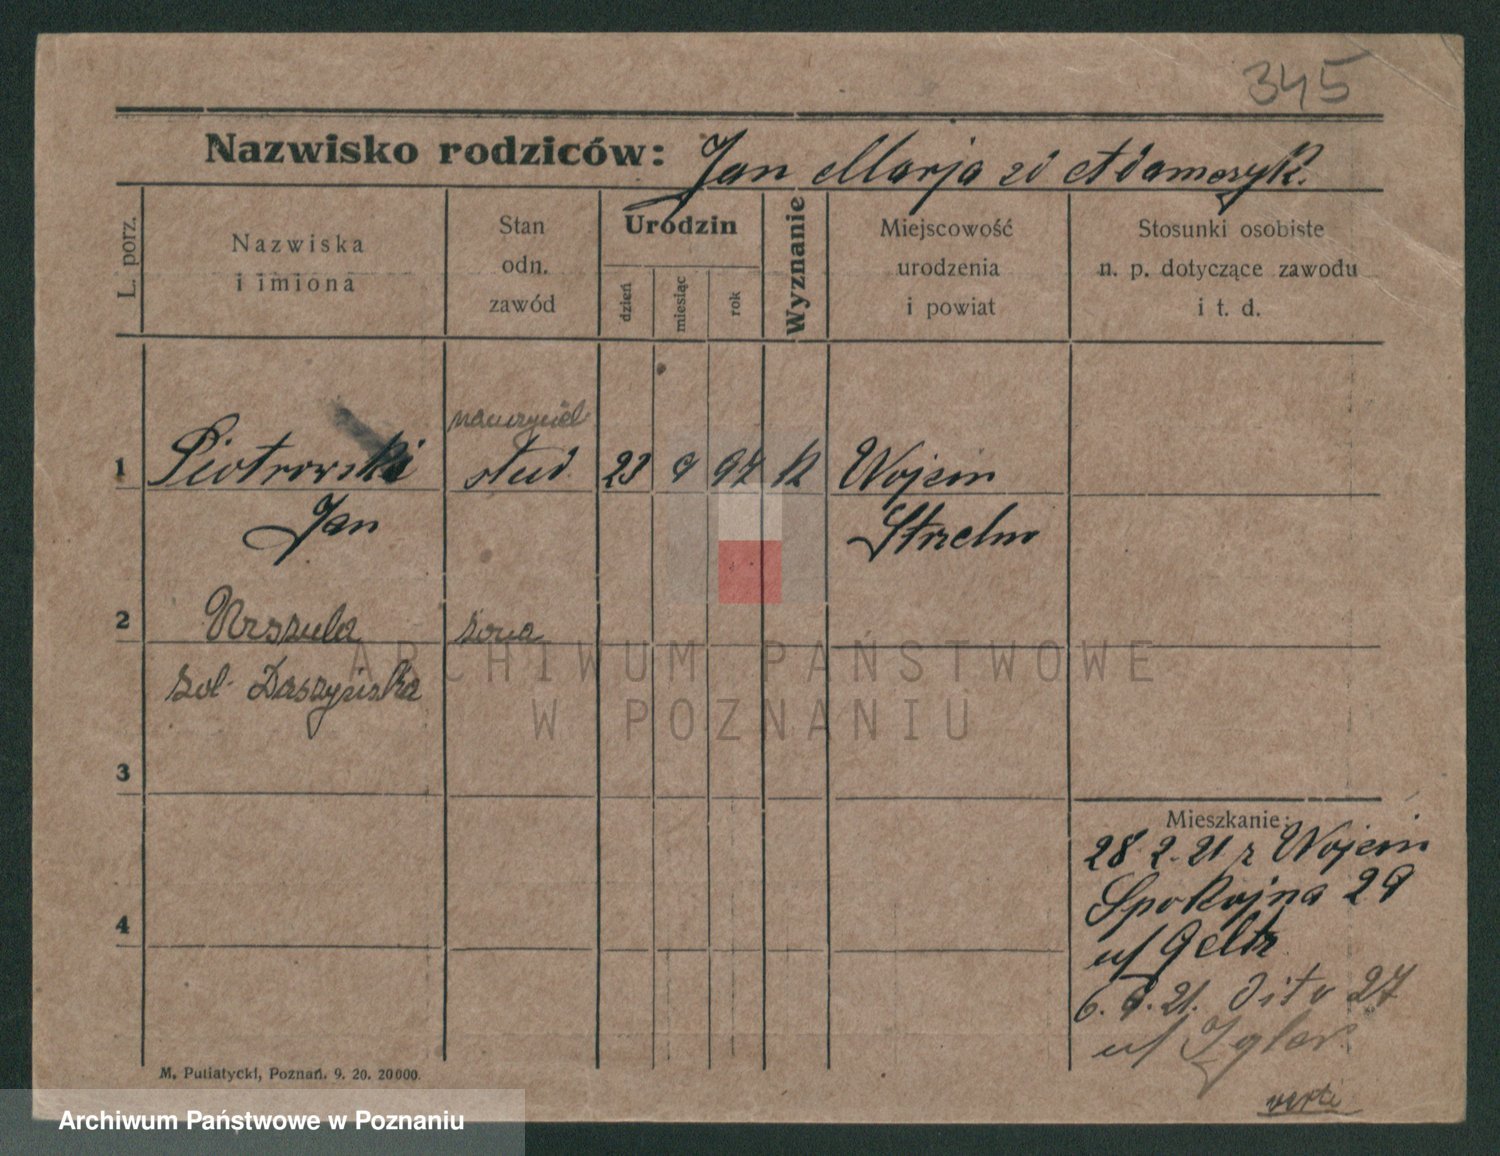 345
Nazwisko rodziców: Jan Marja zd Adamczyk.
L. porz.
Nazwiska
i imiona
Stan
odn.
zawód
Urodzin
dzień
miesiąc
rok
Wyznanie
Miejscowość
urodzenia
i powiat
Stosunki osobiste
n. p. dotyczące zawodu
i t. d.
nauczyciel
1 Piotrowski stud 23 9 97 k Wojcin
Jan Strzelno
2 Urszula żona
zol. Daszyńska
ARCHIWUM PAŃSTWOWE
W POZNANIU
3
Mieszkanie:
28 2. 21 z Wojcin
Spokojna 29
u/
4
6. 9. 21. dito 27
u/
M. Putiatycki, Poznań. 9. 20. 20000.
verte
Archiwum Państwowe w Poznaniu